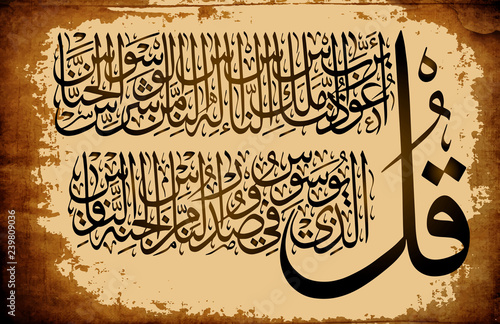 قُل
أَعُوذُ بِرَبِّ النَّاسِ مَلِكِ النَّاسِ إِلَهِ النَّاسِ مِن شَرِّ الْوَسْوَاسِ الْخَنَّاسِ
الَّذِي يُوَسْوِسُ فِي صُدُورِ النَّاسِ مِنَ الْجِنَّةِ وَالنَّاسِ
Adobe Stock | #239809036